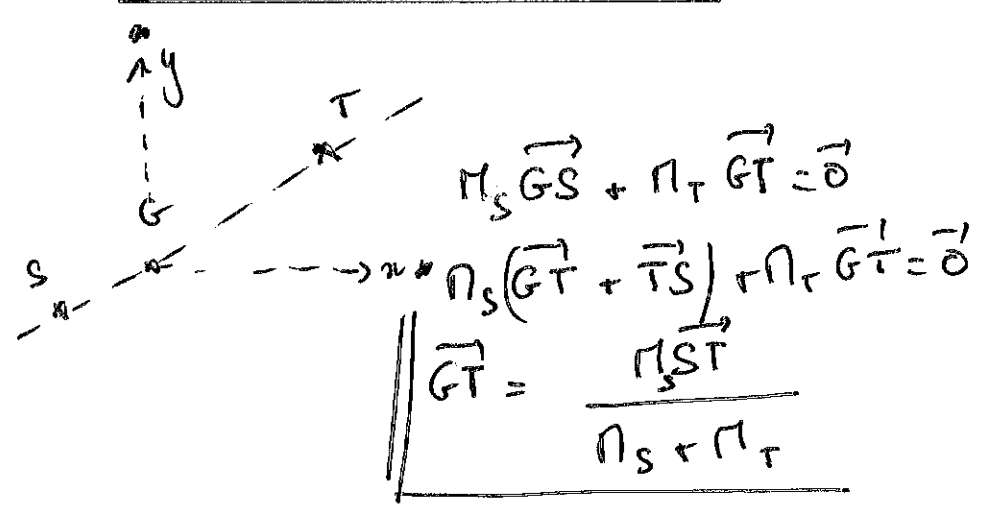 y
T
G
S
x
M_S \overrightarrow{GS} + M_T \overrightarrow{GT} = \vec{0}
M_S (\overrightarrow{GT} + \overrightarrow{TS}) + M_T \overrightarrow{GT} = \vec{0}
\overrightarrow{GT} = \frac{M_S \overrightarrow{ST}}{M_S + M_T}